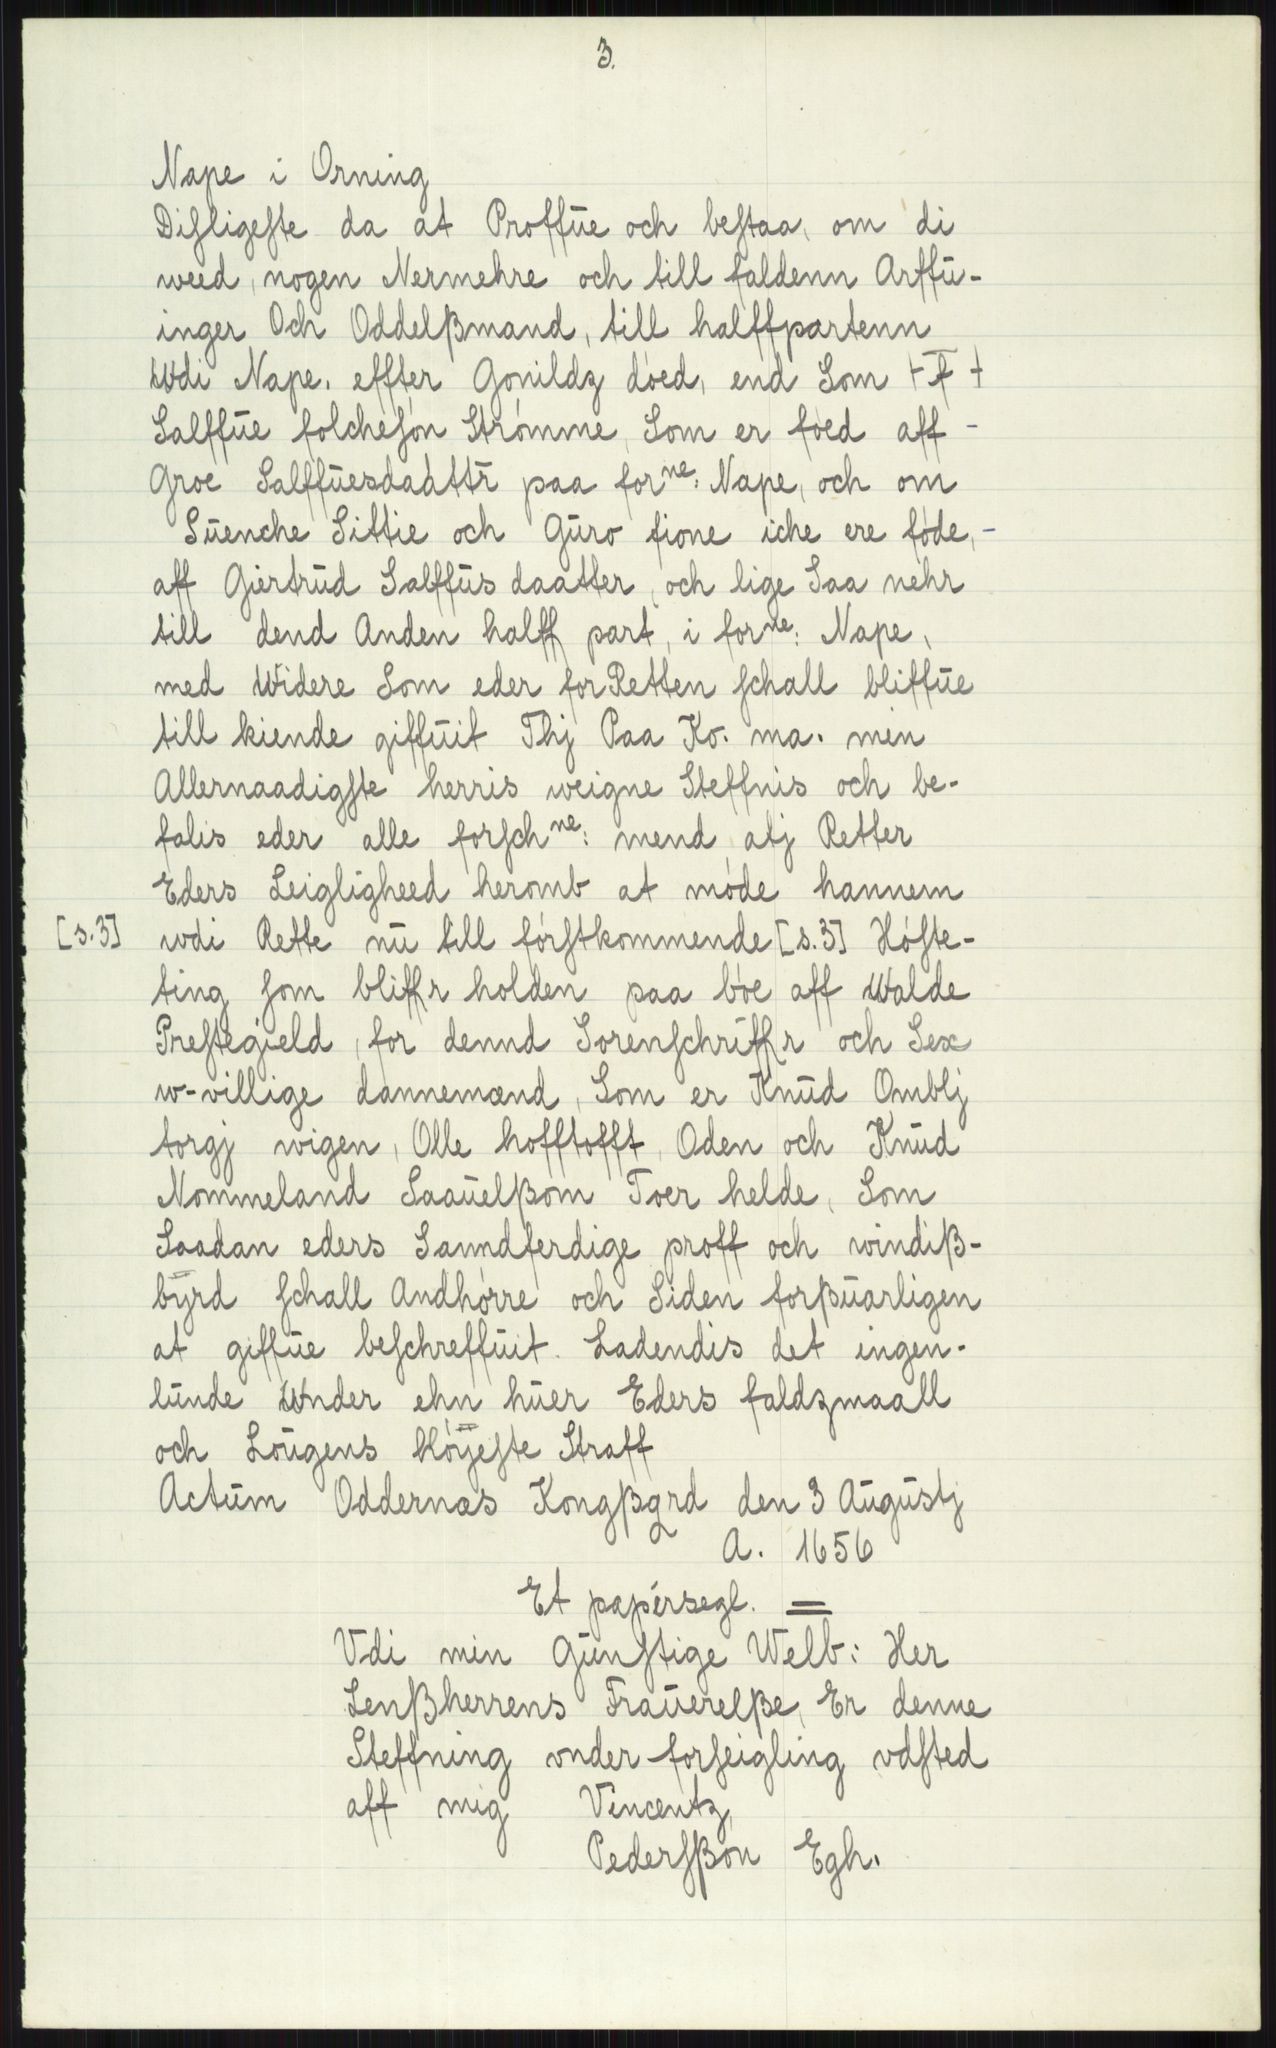 3.
Nape i Orning
Disligeste da at Proffūe och bestaa, om di
weed, nogen Nermehre och till faldenn Arffū-
inger Och Oddelßmand, till halffpartenn
Wdi Nape, effter Gonildz dóed, end Som
Salffūe folchesón Strómme, Som er fóed aff -
Groe Salffūesdaáttr paa forne: Nape, och om
Sūenche Sittie och Gūro fione iche ere fóde, -
aff Giertrūd Salffūs daatter, och lige Saa nehr
till dend Anden halff part, i forne: Nape,
med Widere Som eder for Retten schall bliffūe
till kiende giffūit Thj Paa Ko. ma. min
Allernaadigste herris weigne Steffnis och be-
falis eder alle forschne: mend atj Retter
Eders Leigligheed heromb at móde hannem
[s.3] wdi Rette nū till fórstkommende [s.3] Hóste-
ting som bliffr holden paa bóe aff Walde
Prestegield, for dennd Sorenschriffr och Sex
w-villige dannemænd, Som er Knūd Omblj
torgj wigen, Olle hofftofft, Oden och Knūd
Nommeland Saaūelßom Toer helde, Som
Saadan eders Sanndferdige proff och windiß-
byrd schall Andhórre och Siden forßūarligen
at giffūe beschreffūit. Ladendis det ingen-
lūnde Wnder ehn hūer Eders faldzmaall
och Loūgens Hóÿeste Straff
Actūm Oddernæs Kongßgrd den 3 Aūgūstj
A. 1656
Et papérsegl. =
Vdi min Gūnstige Welb: Her
Lenßherrens Fraūerelße, Er denne
Steffning vnder forseigling vdsted
aff mig Vincentz,
Pedersßón Egh.